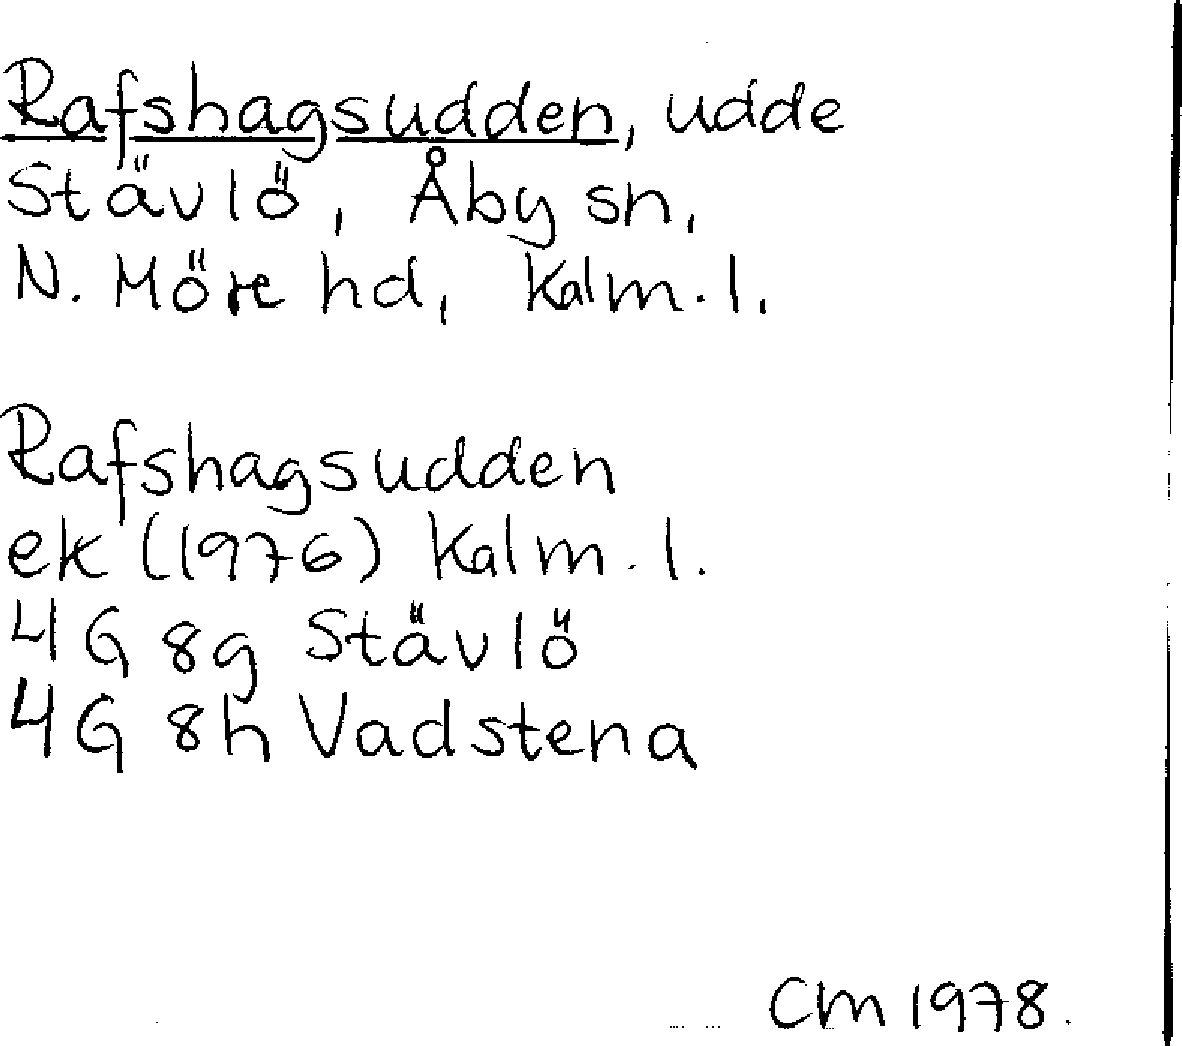 Rafshagsudden, udde
Stävlö, Åby sn,
N. Möre hd, Kalm. l.
Rafshagsudden
ek (1976) Kalm. l.
4G 8g Stävlö
4G 8h Vadstena
CM 1978.